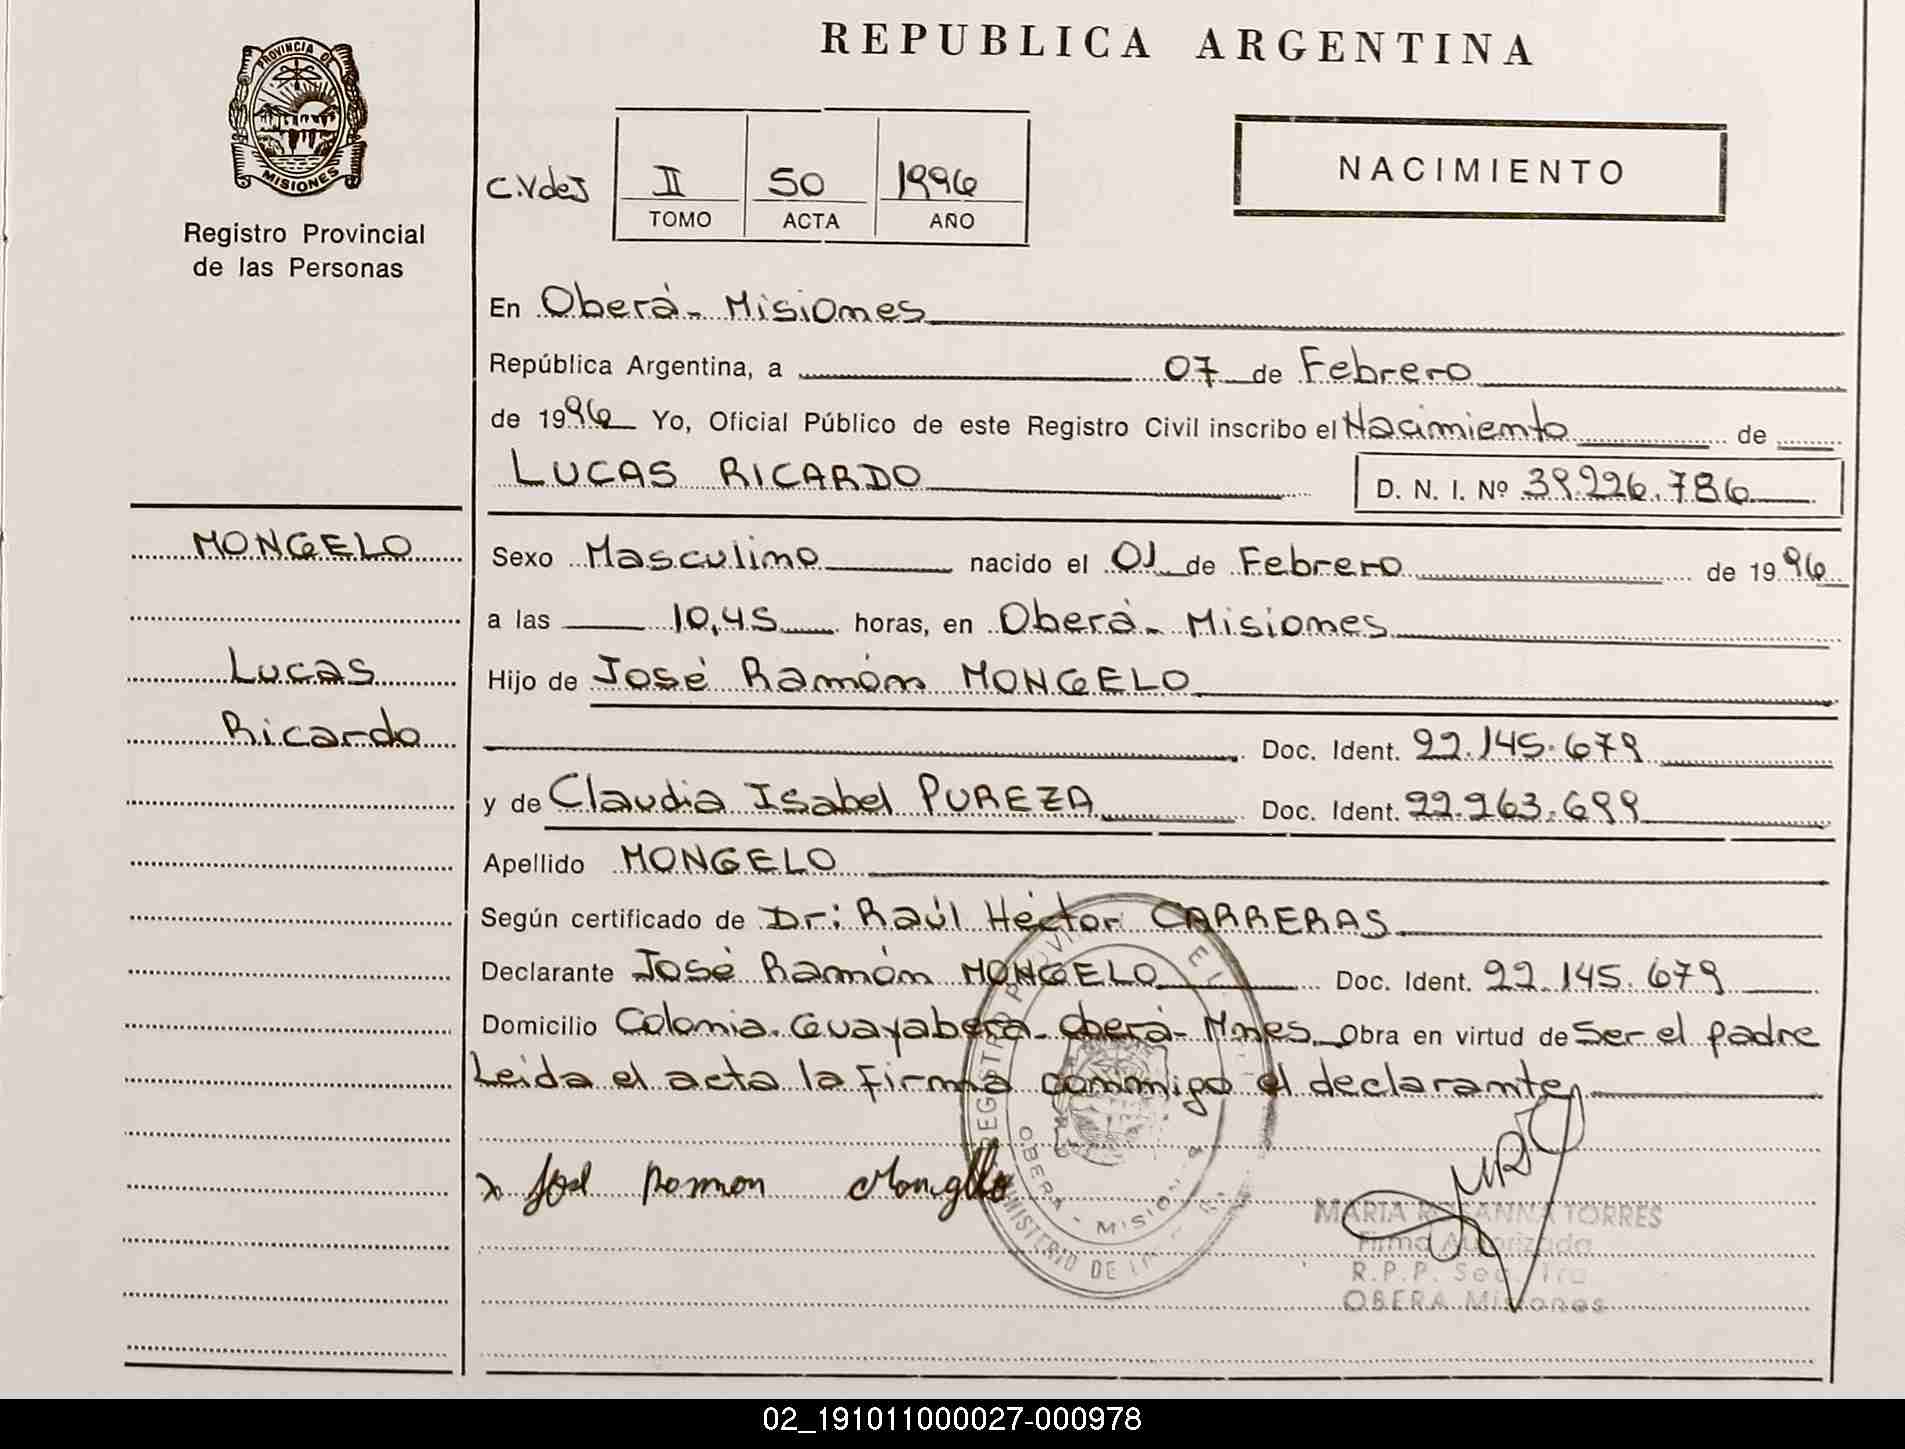 REPUBLICA ARGENTINA
PROVINCIA DE
MISIONES
Registro Provincial
de las Personas
C.VdeJ
II
50
1996
TOMO
ACTA
AÑO
NACIMIENTO
En Oberá - Misiones
República Argentina, a 07 de Febrero
de 1996 Yo, Oficial Público de este Registro Civil inscribo el Nacimiento de
LUCAS RICARDO
D. N. I. Nº 39.226.786
MONGELO
Lucas
Ricardo
Sexo Masculino nacido el 01 de Febrero de 1996
a las 10,45 horas, en Oberá - Misiones
Hijo de José Ramón MONGELO
Doc. Ident. 22.145.679
y de Claudia Isabel PUREZA Doc. Ident. 22.263.699
Apellido MONGELO
Según certificado de Dr: Raúl Héctor CARRERAS
Declarante José Ramón MONGELO Doc. Ident. 22.145.679
Domicilio Colonia Guayabera - Oberá - Mnes Obra en virtud de Ser el padre
Leida el acta la firma conmigo el declarante
x José Ramon Mongelo
REGISTRO
OBERA - MISION
MINISTERIO DE
MARIA ROSANNA TORRES
Firma Autorizada
R.P.P. Sec.
OBERA Misiones
02_191011000027-000978